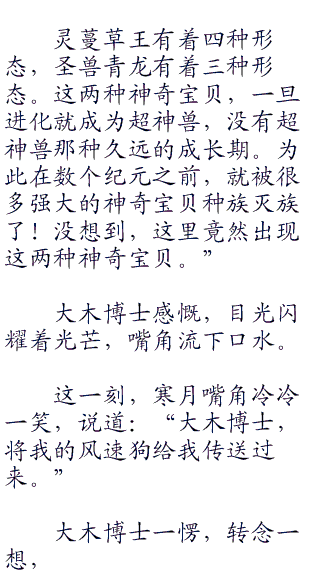 灵蔓草王有着四种形
态，圣兽青龙有着三种形
态。这两种神奇宝贝，一旦
进化就成为超神兽，没有超
神兽那种久远的成长期。为
此在数个纪元之前，就被很
多强大的神奇宝贝种族灭族
了！没想到，这里竟然出现
这两种神奇宝贝。”
大木博士感慨，目光闪
耀着光芒，嘴角流下口水。
这一刻，寒月嘴角冷冷
一笑，说道：“大木博士，
将我的风速狗给我传送过
来。”
大木博士一愣，转念一
想，